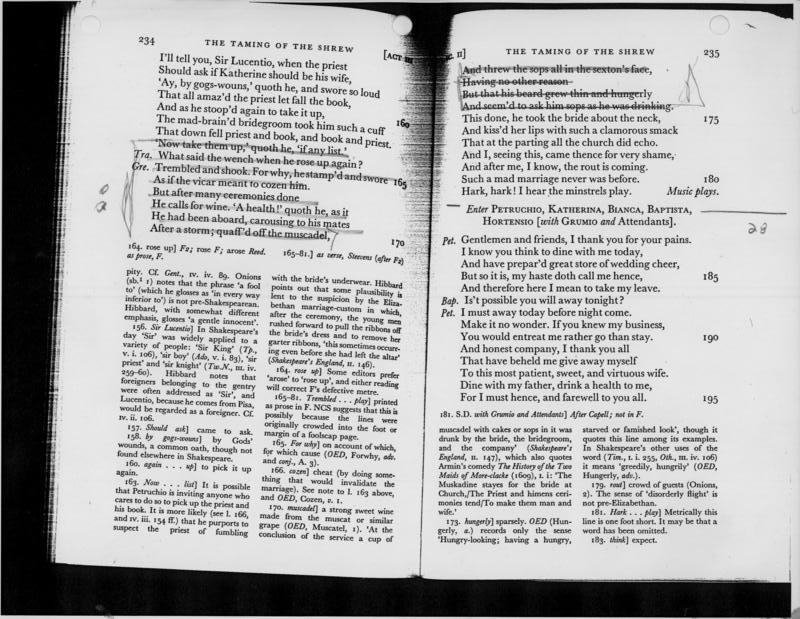 234
THE TAMING OF THE SHREW
[ACT III
I'll tell you, Sir Lucentio, when the priest
Should ask if Katherine should be his wife,
'Ay, by gogs-wouns,' quoth he, and swore so loud
That all amaz'd the priest let fall the book,
And as he stoop'd again to take it up,
160
The mad-brain'd bridegroom took him such a cuff
That down fell priest and book, and book and priest.
'Now take them up,' quoth he, 'if any list.'
Tra. What said the wench when he rose up again?
Gre. Trembled and shook. For why, he stamp'd and swore 165
As if the vicar meant to cozen him.
But after many ceremonies done
He calls for wine. 'A health!' quoth he, as if
He had been aboard, carousing to his mates
After a storm; quaff'd off the muscadel,
170
164. rose up] F2; rose F; arose Reed. 165-81.] as verse, Steevens (after F2)
as prose, F.
pity. Cf. Gent., IV. iv. 89. Onions
(sb.¹ 1) notes that the phrase 'a fool
to' (which he glosses as 'in every way
inferior to') is not pre-Shakespearean.
Hibbard, with somewhat different
emphasis, glosses 'a gentle innocent'.
156. Sir Lucentio] In Shakespeare's
day 'Sir' was widely applied to a
variety of people: 'Sir King' (Tp.,
v. i. 106), 'sir boy' (Ado, v. i. 83), 'sir
priest' and 'sir knight' (Tw.N., III. iv.
259-60). Hibbard notes that
foreigners belonging to the gentry
were often addressed as 'Sir', and
Lucentio, because he comes from Pisa,
would be regarded as a foreigner. Cf.
IV. ii. 106.
157. Should ask] came to ask.
158. by gogs-wouns] by Gods'
wounds, a common oath, though not
found elsewhere in Shakespeare.
160. again . . . up] to pick it up
again.
163. Now . . . list] It is possible
that Petruchio is inviting anyone who
cares to do so to pick up the priest and
his book. It is more likely (see l. 166,
and IV. iii. 154 ff.) that he purports to
suspect the priest of fumbling
with the bride's underwear. Hibbard
points out that some plausibility is
lent to the suspicion by the Eliza-
bethan marriage-custom in which,
after the ceremony, the young men
rushed forward to pull the ribbons off
the bride's dress and to remove her
garter ribbons, 'this sometimes occurr-
ing even before she had left the altar'
(Shakespeare's England, II. 146).
164. rose up] Some editors prefer
'arose' to 'rose up', and either reading
will correct F's defective metre.
165-81. Trembled . . . play] printed
as prose in F. NCS suggests that this is
possibly because the lines were
originally crowded into the foot or
margin of a foolscap page.
165. For why] on account of which,
for which cause (OED, Forwhy, adv.
and conj., A. 3).
166. cozen] cheat (by doing some-
thing that would invalidate the
marriage). See note to l. 163 above,
and OED, Cozen, v. 1.
170. muscadel] a strong sweet wine
made from the muscat or similar
grape (OED, Muscatel, 1). 'At the
conclusion of the service a cup of
SC. II]
THE TAMING OF THE SHREW
235
And threw the sops all in the sexton's face,
Having no other reason
But that his beard grew thin and hungerly
And seem'd to ask him sops as he was drinking.
This done, he took the bride about the neck,
175
And kiss'd her lips with such a clamorous smack
That at the parting all the church did echo.
And I, seeing this, came thence for very shame,
And after me, I know, the rout is coming.
Such a mad marriage never was before.
180
Hark, hark! I hear the minstrels play. Music plays.
Enter PETRUCHIO, KATHERINA, BIANCA, BAPTISTA,
HORTENSIO [with GRUMIO and Attendants].
28
Pet. Gentlemen and friends, I thank you for your pains.
I know you think to dine with me today,
And have prepar'd great store of wedding cheer,
But so it is, my haste doth call me hence,
185
And therefore here I mean to take my leave.
Bap. Is't possible you will away tonight?
Pet. I must away today before night come.
Make it no wonder. If you knew my business,
You would entreat me rather go than stay.
190
And honest company, I thank you all
That have beheld me give away myself
To this most patient, sweet, and virtuous wife.
Dine with my father, drink a health to me,
For I must hence, and farewell to you all.
195
181. S.D. with Grumio and Attendants] After Capell; not in F.
muscadel with cakes or sops in it was
drunk by the bride, the bridegroom,
and the company' (Shakespeare's
England, II. 147), which also quotes
Armin's comedy The History of the Two
Maids of More-clacke (1609), I. i: 'The
Muskadine stayes for the bride at
Church,/The Priest and himens ceri-
monies tend/To make them man and
wife.'
173. hungerly] sparsely. OED (Hun-
gerly, a.) records only the sense
'Hungry-looking; having a hungry,
starved or famished look', though it
quotes this line among its examples.
In Shakespeare's other uses of the
word (Tim., I. i. 255, Oth., III. iv. 106)
it means 'greedily, hungrily' (OED,
Hungerly, adv.).
179. rout] crowd of guests (Onions,
2). The sense of 'disorderly flight' is
not pre-Elizabethan.
181. Hark . . . play] Metrically this
line is one foot short. It may be that a
word has been omitted.
183. think] expect.